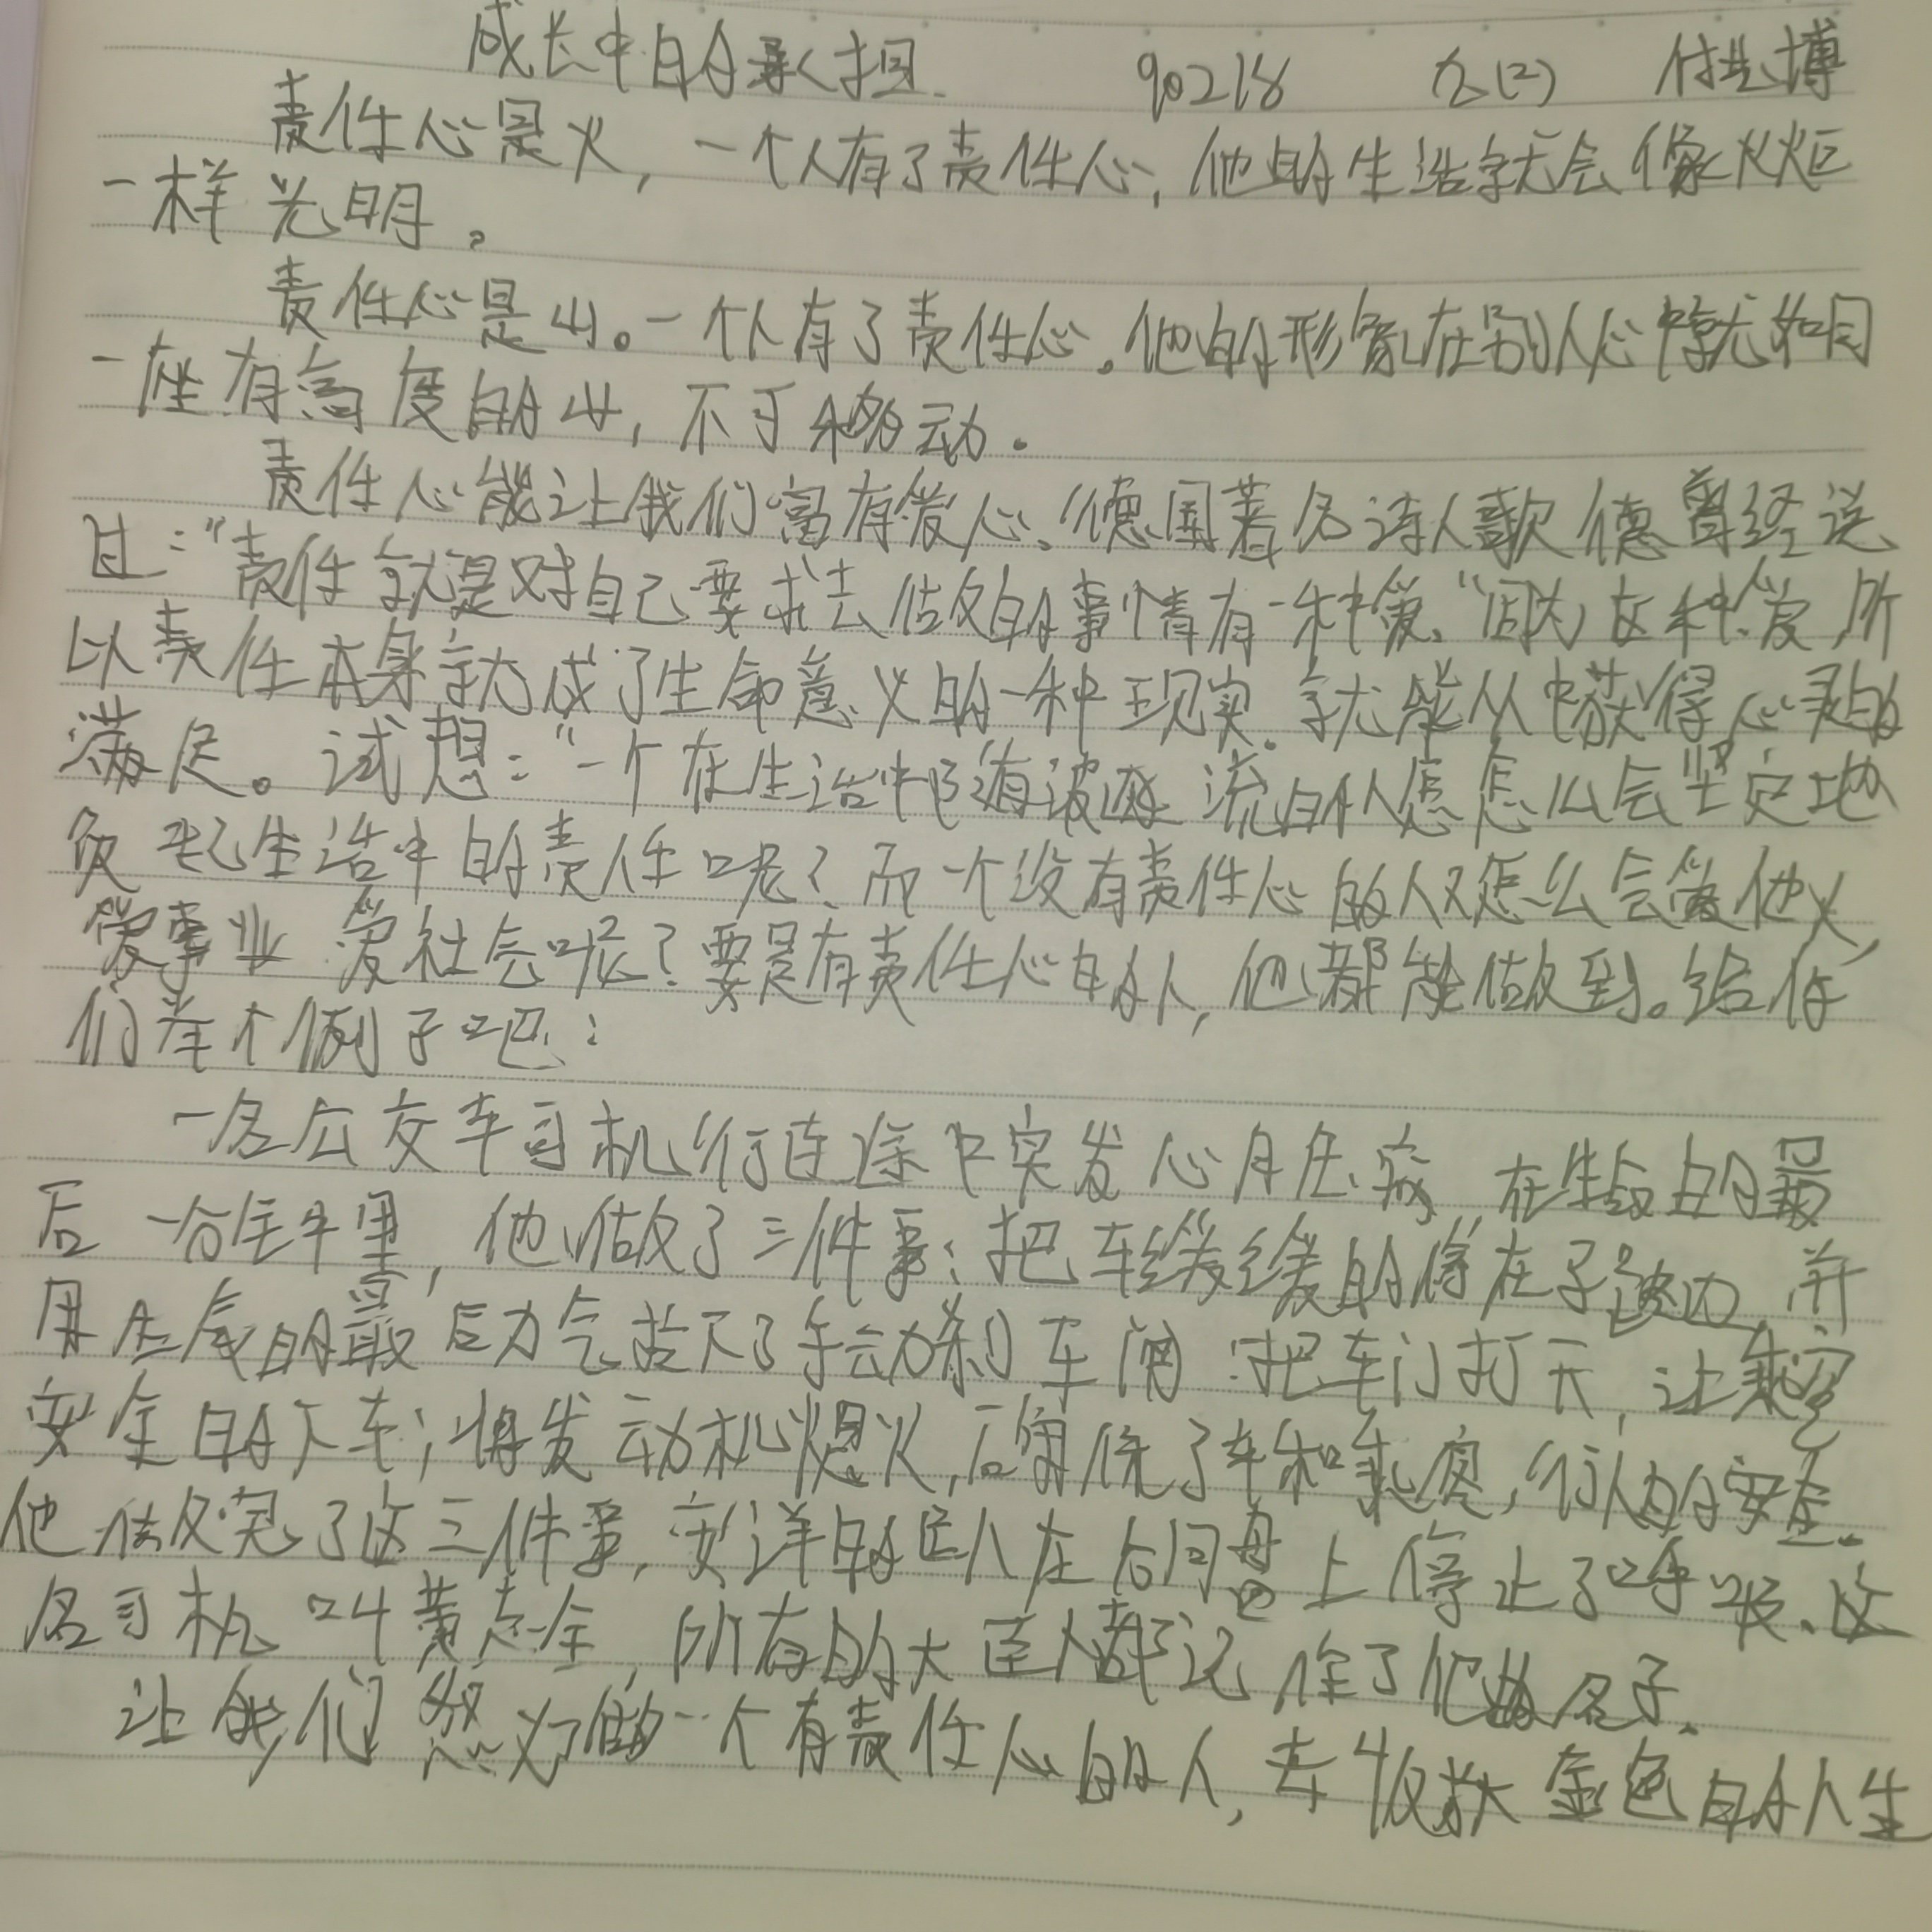 成长中的承担. 90218 九(2) 付志博
责任心是火,一个人有了责任心,他的生活就会像火炬
一样光明。
责任心是山。一个人有了责任心。他的形象在别人心中就如同
一座有高度的山,不可移动.
责任心能让我们富有爱心。德国著名诗人歌德曾经说
过:"责任就是对自己要求去做的事情有一种爱."因为这种爱,所
以责任本身就成了生命意义的一种现实.就能从中获得心灵的
满足。试想:"一个在生活中随波逐流的人怎么会坚定地
负起生活中的责任呢?而一个没有责任心的人又怎么会爱他人,
爱事业 爱社会呢?要是有责任心的人,他都能做到。给你
们举个例子吧:
一名公交车司机行连途中突发心脏病 在生命的最
后一分钟里,他做了三件事:把车缓缓的停在了路边 并
用生命的最后力气拉下了手动刹车闸;把车门打开,让乘客
安全的下车;将发动机熄火,确保了车和乘客,行人的安全.
他做完了这三件事,安详的趴在方向盘上停止了呼吸.这
名司机叫黄志全,所有的大连人都记住了他的名子.
让我们努力做一个有责任心的人,去收获金色的人生